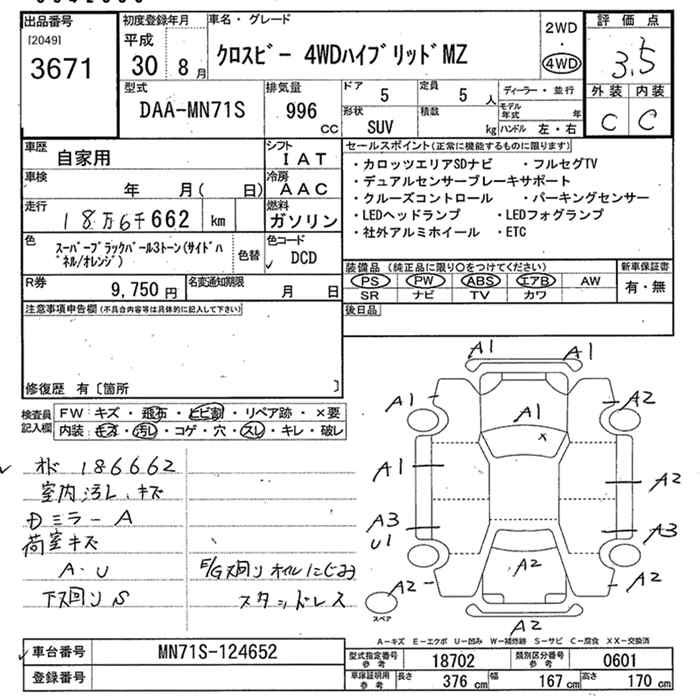 出品番号
[2049]
3671
初度登録年月
平成
30 8月
車名・グレード
クロスビー 4WDハイブリッドMZ
2WD
・
4WD
評価点
3.5
外装 内装
C C
型式
DAA-MN71S
排気量
996
CC
ドア 5
定員 5 人
形状
SUV
積数
kg
ディーラー・並行
モデル年式 年
ハンドル 左・右
車歴
自家用
シフト
IAT
車検
年 月( 日)
冷房
AAC
走行
18万6千662 km
燃料
ガソリン
色
スーパーブラックパール3トーン(サイドパネル/オレンジ)
色替
色コード
DCD
R券
9,750円
名変通知期限
月 日
セールスポイント(正常に機能するものに限ります)
・カロッツエリアSDナビ ・フルセグTV
・デュアルセンサーブレーキサポート
・クルーズコントロール ・パーキングセンサー
・LEDヘッドランプ ・LEDフォグランプ
・社外アルミホイール ・ETC
装備品(純正品に限り○をつけてください)
PS PW ABS エアB AW
SR ナビ TV カワ
新車保証書
有・無
後日品
注意事項申告欄(不具合内容等は具体的に記入して下さい)
修復歴 有〔箇所 〕
検査員
記入欄
FW:キズ・飛石・ヒビ割・リペア跡・×要
内装:キズ・汚レ・コゲ・穴・スレ・キレ・破レ
オド 186662
室内汚レ、キズ
Dミラー A
荷室キズ
A・U
下回りS
E/G下回りオイルにじみ
スタッドレス
A1
A1
A1
A2
A1
A2
A3
U1
A3
A2
A2
A2
A2
x
スペア
A−キズ E−エクボ U−凹み W−補修跡 S−サビ C−腐食 XX−交換済
車台番号
MN71S-124652
登録番号
型式指定番号
参考
18702
類別区分番号
参考
0601
車庫証明用
参考
長さ 376 cm
幅 167 cm
高さ 170 cm